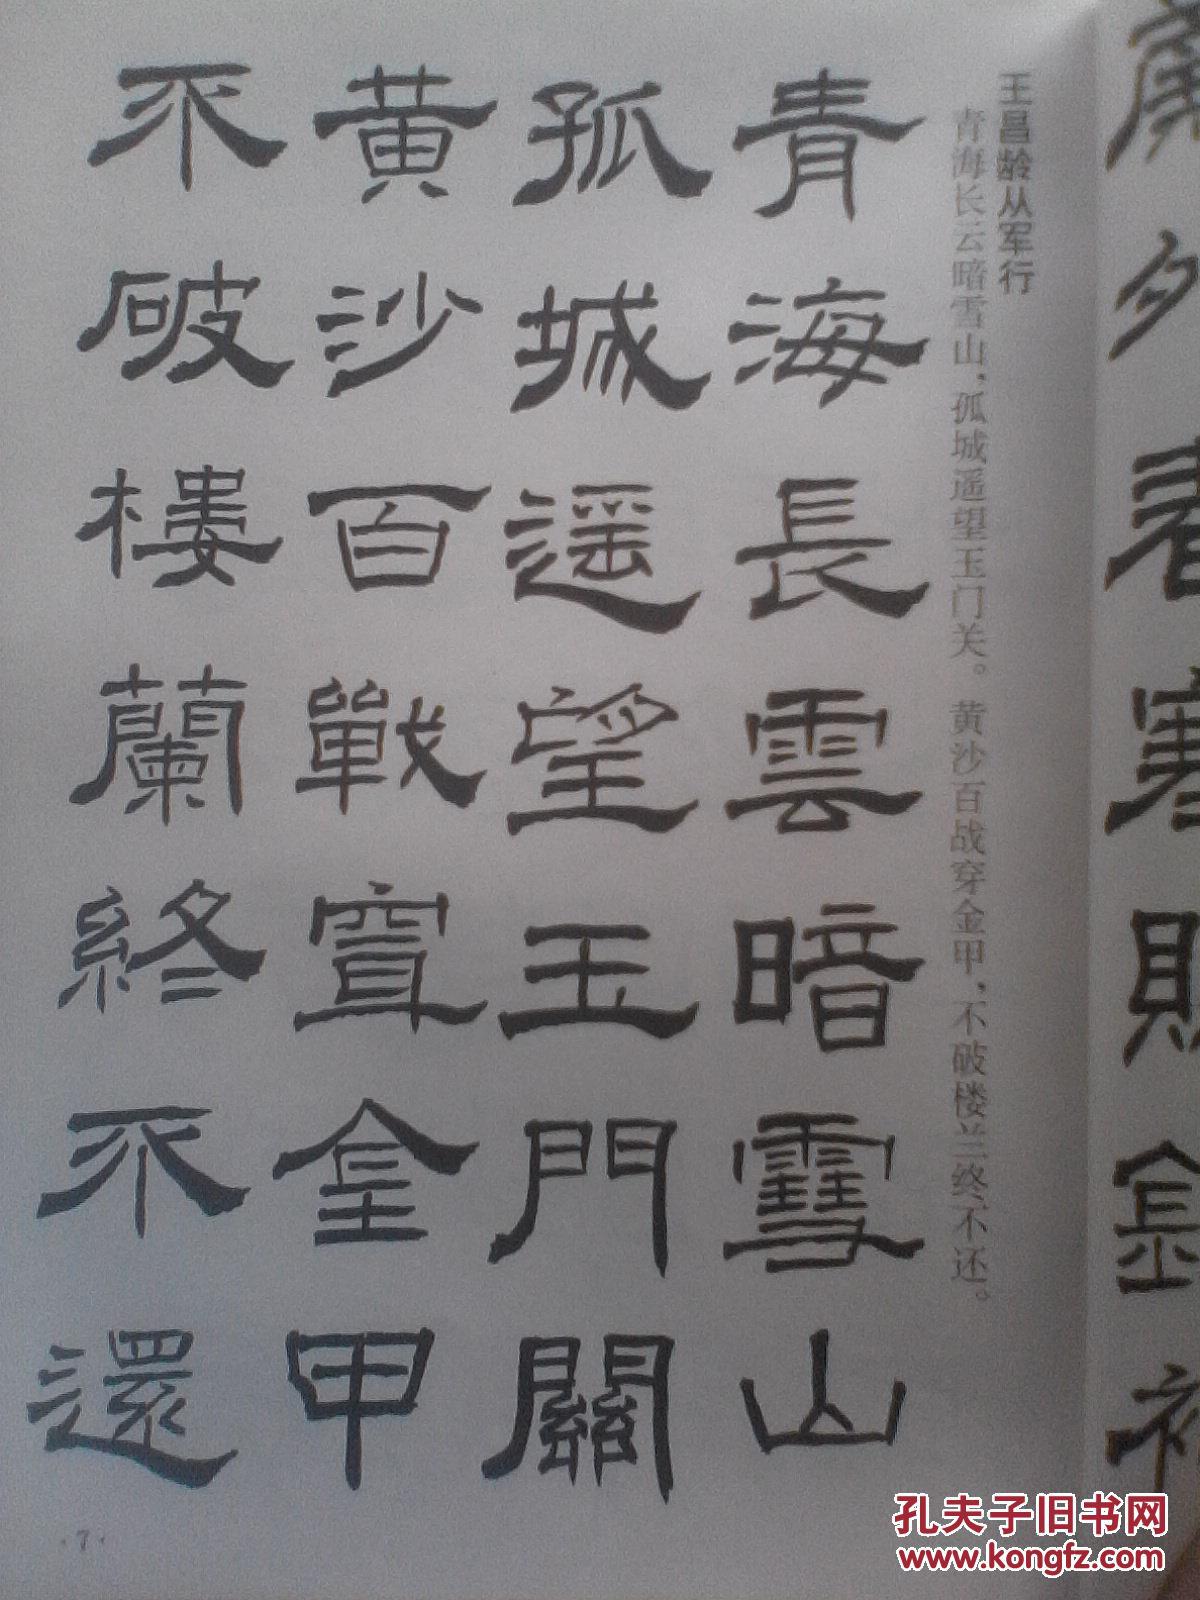 王昌龄从军行
青海长云暗雪山，孤城遥望玉门关。黄沙百战穿金甲，不破楼兰终不还。
青海長雲暗雪山
孤城遥望玉門關
黄沙百戰穿金甲
不破樓蘭終不還
·7·
孔夫子旧书网
www.kongfz.com